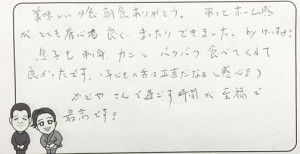 美味しい夕食 朝食 ありがとう。 あっとホーム感
がとても居心地良く、またりできました。by けいすけ
息子も 刺身、カニと パクパク 食べてくれて
良かったです。（子どもの舌は正直だなぁと感心!）
かどや さんで過ごす時間が 至福で
最高です!